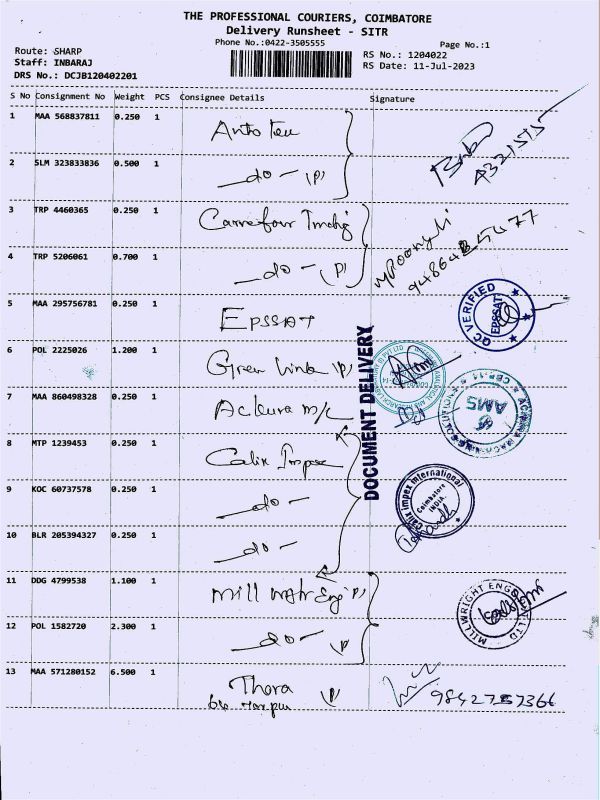 THE PROFESSIONAL COURIERS, COIMBATORE
Delivery Runsheet - SITR
Phone No.:0422-3505555
Page No.:1
Route: SHARP
Staff: INBARAJ
DRS No.: DCJB120402201
RS No.: 1204022
RS Date: 11-Jul-2023
S No Consignment No Weight PCS Consignee Details Signature
1 MAA 568837811 0.250 1
2 SLM 323833836 0.500 1 -do- (P)
3 TRP 4460365 0.250 1 Carrefour
4 TRP 5206061 0.700 1 -do- (P)
5 MAA 295756781 0.250 1 EPSSAT
QC VERIFIED
EPSSAT
6 POL 2225026 1.200 1 Green (P)
7 MAA 860498328 0.250 1
AMS
DOCUMENT DELIVERY
8 MTP 1239453 0.250 1 Calix Impex
9 KOC 60737578 0.250 1 -do-
Calix impex international
Coimbatore
INDIA.
10 BLR 205394327 0.250 1 -do-
11 DDG 4799538 1.100 1 Mill (P)
12 POL 1582720 2.300 1 -do- (P)
13 MAA 571280152 6.500 1 Thora (P)